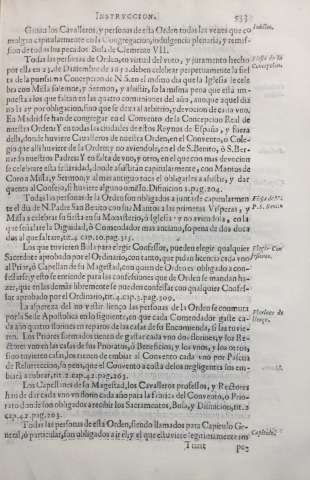 INSTRUCCION.
533
Ganan los Cavalleros, y personas de esta Orden todas las vezes que comulgan capitularmente en la Congregacion, indulgencia plenaria, y remission de todos sus pecados. Bula de Clemente VII.
Todas las personas de Orden, en virtud del voto, y juramento hecho
por ella en 23. de Diziembre de 1652. deben celebrar perpetuamente la fiesta de la purissima Concepcion de N. S. en el mismo dia que la Iglesia le celebra con Missa solemne, y Sermon, y assistir, so la misma pena que està impuesta a los que faltan en las quatro comuniones del año, aunque aquel dia
no la ay por obligacion, sino que se dexa al arbitrio, y devocion de cada uno.
En Madrid se han de congregar en el Convento de la Concepcion Real de
nuestra Orden: Y en todas las ciudades de estos Reynos de España, y fuera
della, donde huviere Cavalleros de nuestra Orden, en el Convento, o Colegio que alli huviere de la Orden: y no aviendole, en el de S. Benito, ò S. Bernardo nuestros Padres: Y en falta de uno, y otro, en el que con mas devocion
se celebrare esta festividad, donde assistiràn capitularmente, con Mantos de
Coro a Missa, y Sermon, y al mas antiguo toca el obligarles a assistir, y dar
quenta al Consejo, si huviere alguno omisso. Difinicion 2. pag. 204.
Todas las personas de la Orden son obligados a juntarse capitularmente el dia de N. Padre San Benito con sus Mantos a las primeras Visperas, y
Missa a celebrar su fiesta en su Monasterio, ò Iglesia: y no aviendola, en la
que señalare la Dignidad, ò Comendador mas anciano, so pena de dos ducados al que faltare, tit. 4. cap. 10. pag. 215.
Los que tuvieren Bula para elegir Confessor, pueden elegir qualquier
Sacerdote aprobado por el Ordinario, con tanto, que pidan licencia cada uno
al Prior, ò Capellan de su Magestad, con quien de Orden es obligado a confessarse; y esto se entiende para las confessiones que de Orden se mandan hazer, que en las demàs libremente se pueden confessar con qualquier Confessor aprobado por el Ordinario, tit. 4. cap. 3. pag. 309.
La aspereza del no vestir lienço las personas de la Orden se comuta
por la Sede Apostolica en lo siguiente, en que cada Comendador gaste cada año quatro florines en reparos de las casas de su Encomienda, si las tuviere. Los Priores formados tienen de gastar cada uno dos florines, y los Rectores uno en las casas de sus Prioratos, ò Beneficios; y los unos, y los otros,
si no tuvieren casas, los tienen de embiar al Convento cada uno por Pascua
de Resurreccion, so pena, que el Convento a costa de los negligentes los embiarà a cobrar, tit. 2. cap. 42. pag. 203.
Los Capellanes de su Magestad, los Cavalleros professos, y Rectores
han de dar cada uno un florin cada año para la fabrica del Convento, ò Priorato donde son obligados a recibir los Sacramentos, Bula, y Difinicion, tit. 2.
cap. 42. pag. 203.
Todas las personas de esta Orden, siendo llamados para Capitulo General, ò particular, son obligados a ir à èl; y el que estuviere legitimamente im-
pe-